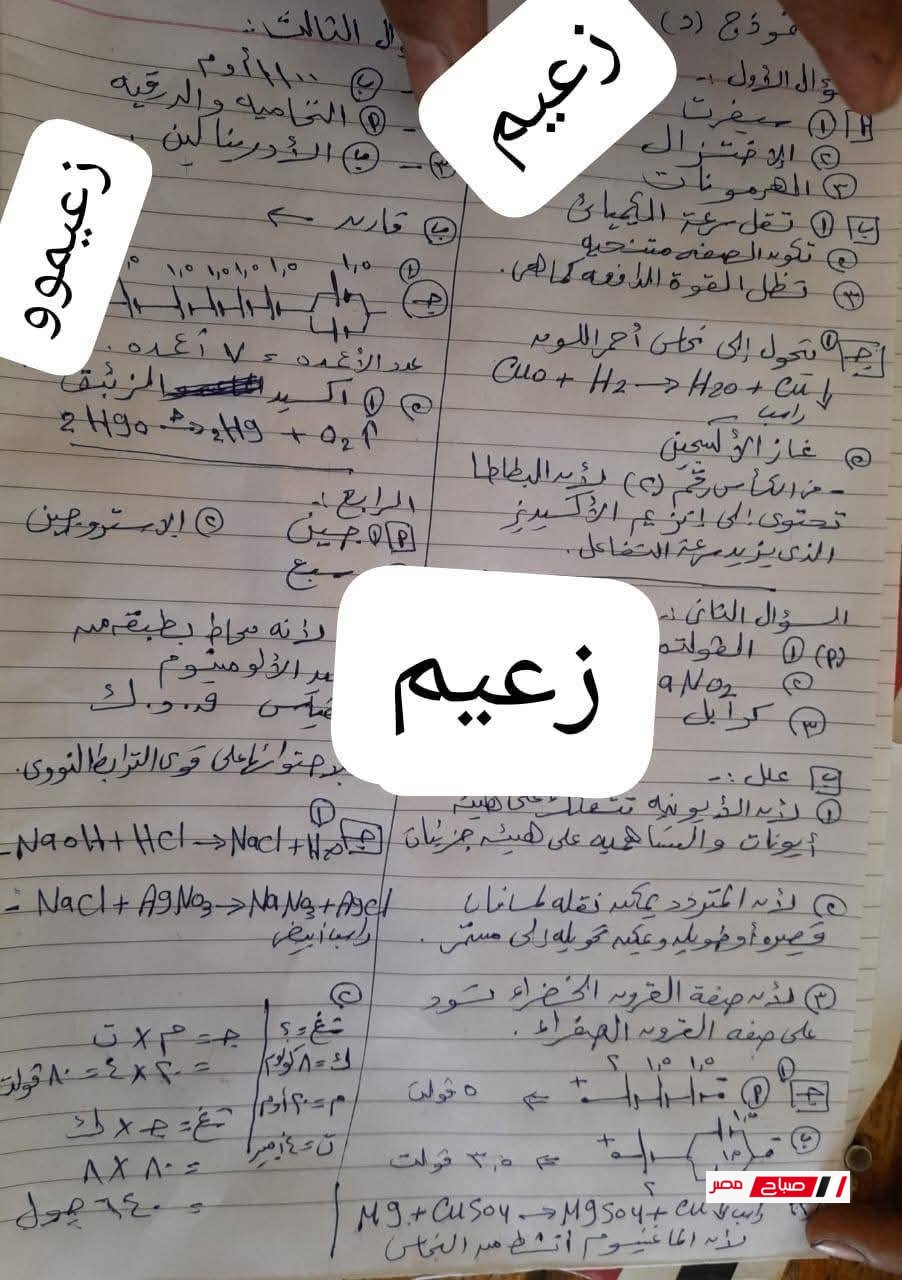 نموذج (د)
السؤال الأول :-
أ ١ سيفرت
٢ الاختزال
٣ الهرمونات
ب ١ تقل سرعة التفاعل الكيميائى
٢ تكون الصفه متنحيه
٣ تظل القوة الدافعه كما هى.
ج ١ تتحول إلى نحاس أحمر اللون
CuO + H2 → H2O + Cu ↓
راسب
٢ غاز الأكسجين
- من الكأس رقم (٢) لأن البطاطا
تحتوى إلى إنزيم الأكسيديز
الذى يزيد سرعة التفاعل.
السؤال الثانى :-
(أ) ١
٢ NO2
٣ كرابل
ب علل :-
١ لأن الأيونيه تتفكك على هيئه
أيونات والتساهميه على هيئه جزيئات
٢ لأن المتردد يمكن نقله لمسافات
قصيره أو طويله ويمكن تحويله إلى مستمر.
٣ لأن صفة القرون الخضراء تسود
على صفه القرون الصفراء.
ج ١ أ ١,٥ ١,٥ ٢ + ⇐ ٥ فولت
ب + ١,٥ ١,٥ ٢ ⇐ ٣,٥ فولت
Mg + CuSO4 → MgSO4 + Cu ↓ راسب
لأن الماغنيسيوم أنشط من النحاس
السؤال الثالث :-
ب ١١٠٠ أوم
أ النخاميه والدرقيه
٣ - ب الأدرينالين
ب قارن ←
ج ١ ١,٥ ١,٥ ١,٥ ١,٥ ١,٥
عدد الأعمده = ٧ أعمده.
٢ ١ أكسيد الزئبق
2HgO →Δ 2Hg + O2 ↑
الرابع :-
أ ١ جين ٢ الاستروجين
سبع
لأنه محاط بطبقه من
الألومنيوم
ق.و.ك
لاحتوائها على قوى الترابط النووى.
ج ١
- NaOH + HCl → NaCl + H2O
- NaCl + AgNO3 → NaNO3 + AgCl
راسب أبيض
٢
شغ = ؟
ك = ٨ كولوم
م = ٢٠ أوم
ت = ٤ أمبير
جـ = م × ت
= ٢٠ × ٤ = ٨٠ فولت
شغ = جـ × ك
= ٨٠ × ٨
= ٦٤٠ جول
زعيم
زعيموو
زعيم
صباح مصر